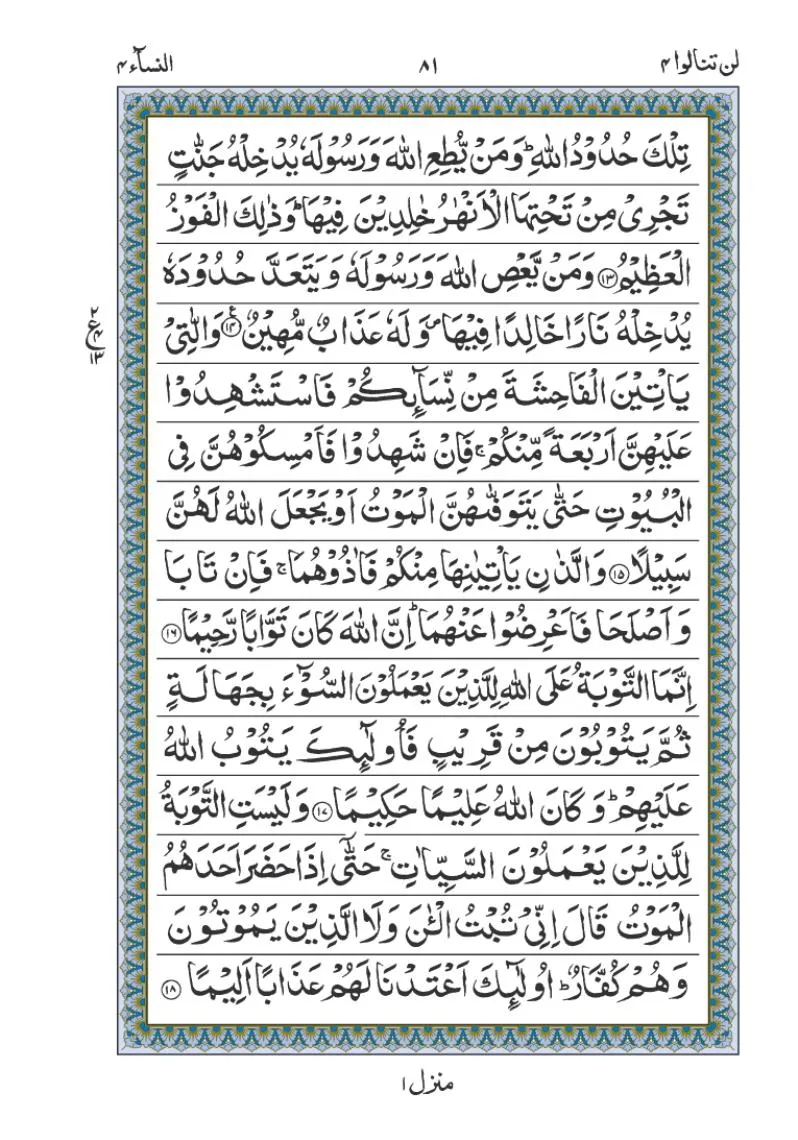 لن تنالوا ۴ ۸۱ النسآء ۴
تِلْكَ حُدُوْدُ اللّٰهِ ؕ وَ مَنْ یُّطِعِ اللّٰهَ وَ رَسُوْلَهٗ یُدْخِلْهُ جَنّٰتٍ
تَجْرِیْ مِنْ تَحْتِهَا الْاَنْهٰرُ خٰلِدِیْنَ فِیْهَا ؕ وَ ذٰلِكَ الْفَوْزُ
الْعَظِیْمُ ﴿۱۳﴾ وَ مَنْ یَّعْصِ اللّٰهَ وَ رَسُوْلَهٗ وَ یَتَعَدَّ حُدُوْدَهٗ
یُدْخِلْهُ نَارًا خَالِدًا فِیْهَا ۪ وَ لَهٗ عَذَابٌ مُّهِیْنٌ ﴿۱۴﴾ وَ الّٰتِیْ
یَاْتِیْنَ الْفَاحِشَةَ مِنْ نِّسَآىِٕكُمْ فَاسْتَشْهِدُوْا
عَلَیْهِنَّ اَرْبَعَةً مِّنْكُمْ ۚ فَاِنْ شَهِدُوْا فَاَمْسِكُوْهُنَّ فِی
الْبُیُوْتِ حَتّٰی یَتَوَفّٰىهُنَّ الْمَوْتُ اَوْ یَجْعَلَ اللّٰهُ لَهُنَّ
سَبِیْلًا ﴿۱۵﴾ وَ الَّذٰنِ یَاْتِیٰنِهَا مِنْكُمْ فَاٰذُوْهُمَا ۚ فَاِنْ تَابَا
وَ اَصْلَحَا فَاَعْرِضُوْا عَنْهُمَا ؕ اِنَّ اللّٰهَ كَانَ تَوَّابًا رَّحِیْمًا ﴿۱۶﴾
اِنَّمَا التَّوْبَةُ عَلَی اللّٰهِ لِلَّذِیْنَ یَعْمَلُوْنَ السُّوْٓءَ بِجَهَالَةٍ
ثُمَّ یَتُوْبُوْنَ مِنْ قَرِیْبٍ فَاُولٰٓىِٕكَ یَتُوْبُ اللّٰهُ
عَلَیْهِمْ ؕ وَ كَانَ اللّٰهُ عَلِیْمًا حَكِیْمًا ﴿۱۷﴾ وَ لَیْسَتِ التَّوْبَةُ
لِلَّذِیْنَ یَعْمَلُوْنَ السَّیِّاٰتِ ۚ حَتّٰۤی اِذَا حَضَرَ اَحَدَهُمُ
الْمَوْتُ قَالَ اِنِّیْ تُبْتُ الْـٰٔنَ وَ لَا الَّذِیْنَ یَمُوْتُوْنَ
وَ هُمْ كُفَّارٌ ؕ اُولٰٓىِٕكَ اَعْتَدْنَا لَهُمْ عَذَابًا اَلِیْمًا ﴿۱۸﴾
۲
ع ۴
۱۳
منزل ۱